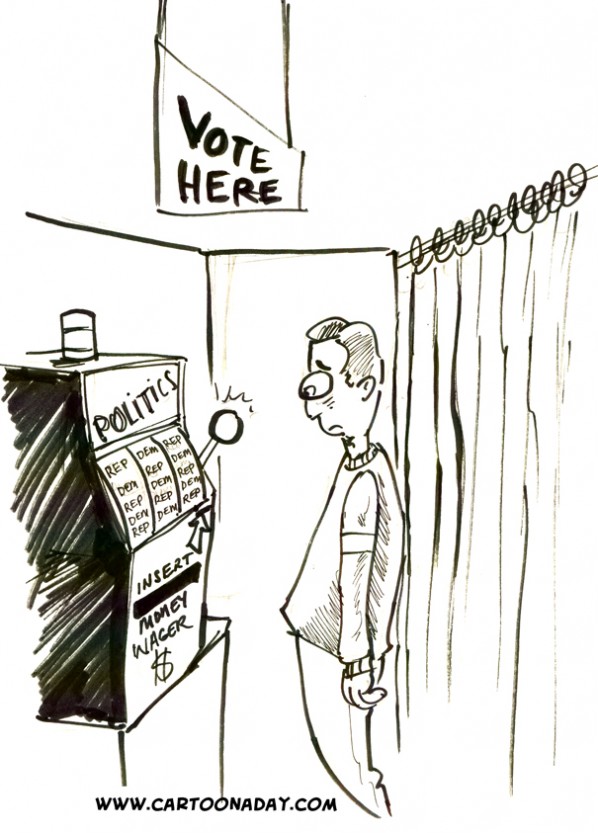 VOTE
HERE
POLITICS
REP
DEM
REP
DEM
REP
DEM
REP
DEM
REP
DEM
REP
DEM
REP
DEM
REP
INSERT
MONEY
WAGER
$
WWW.CARTOONADAY.COM